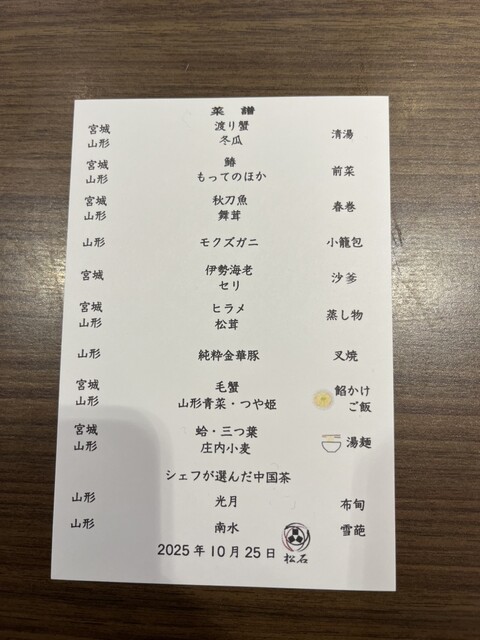 菜 譜
宮城 渡り蟹 清湯
山形 冬瓜
宮城 鰆 前菜
山形 もってのほか
宮城 秋刀魚 春巻
山形 舞茸
山形 モクズガニ 小籠包
宮城 伊勢海老 沙爹
セリ
宮城 ヒラメ 蒸し物
山形 松茸
山形 純粋金華豚 叉焼
宮城 毛蟹 餡かけ
山形 山形青菜・つや姫 ご飯
宮城 蛤・三つ葉 湯麺
山形 庄内小麦
シェフが選んだ中国茶
山形 光月 布甸
山形 南水 雪葩
2025年10月25日 松石